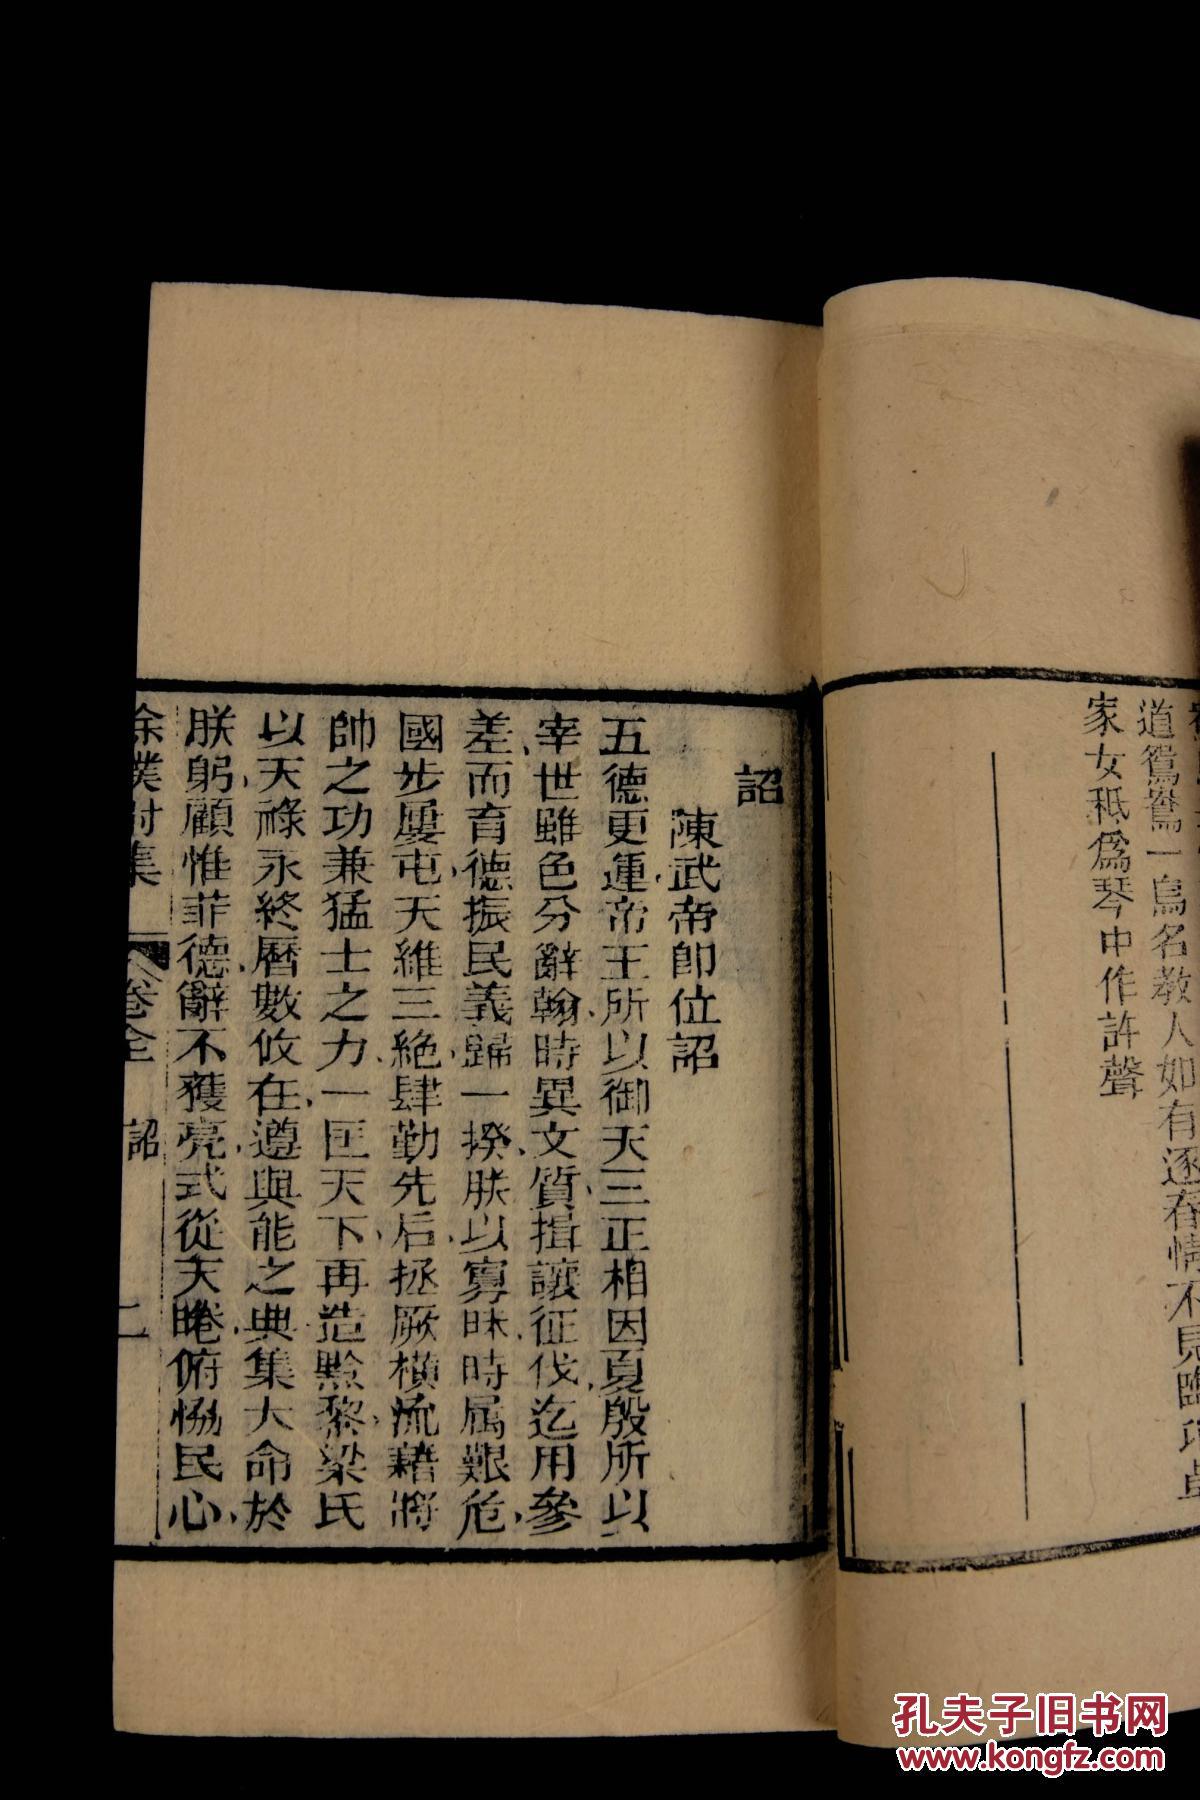 道鴛鴦一鳥名教人如有逐春情不見臨邛卓
家女秪爲琴中作許聲
詔
陳武帝卽位詔
五德更運帝王所以御天三正相因夏殷所以
宰世雖色分辭翰時異文質揖讓征伐迄用參
差而育德振民義歸一揆朕以寡昧時属艱危
國步屢屯天維三絶肆勤先后拯厥橫流藉將
帥之功兼猛士之力一匡天下再造黔黎梁氏
以天祿永終曆數攸在遵與能之典集大命於
朕躬顧惟菲德辭不獲亮式從天睠俯恊民心
徐僕射集 卷全 詔 二
孔夫子旧书网
www.kongfz.com